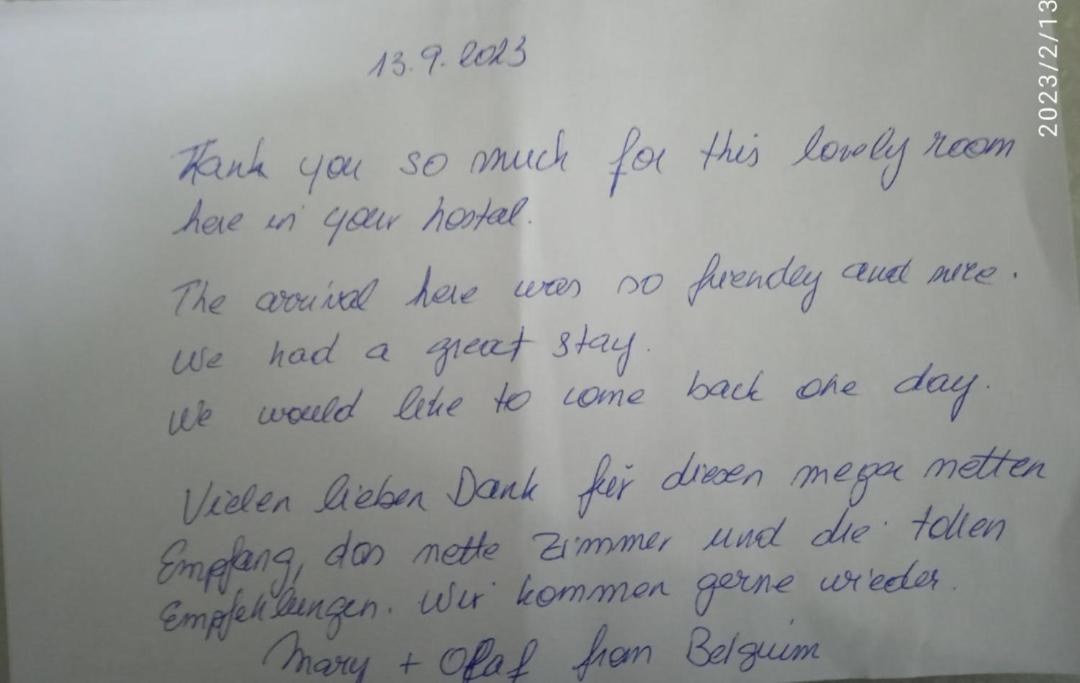 2023/2/13
13.9.2023
Thank you so much for this lovely room
here in your hostal.
The arrival here was so friendly and nice.
We had a great stay.
We would like to come back one day.
Vielen lieben Dank für diesen mega netten
Empfang, das nette Zimmer und die tollen
Empfehlungen. Wir kommen gerne wieder.
Mary + Olaf from Belguim